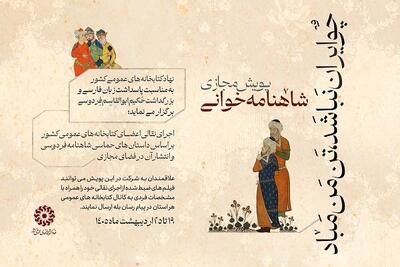 چو ایران نباشد، تن من مباد
پویش مجازی
شاهنامه‌خوانی
نهاد کتابخانه‌های عمومی کشور
به مناسبت پاسداشت زبان فارسی و
بزرگداشت حکیم ابوالقاسم فردوسی
برگزار می‌نماید:
اجرای نقالی اعضای کتابخانه‌های عمومی کشور
بر اساس داستان‌های حماسی شاهنامه فردوسی
و انتشار آن در فضای مجازی
علاقمندان به شرکت در این پویش می توانند
فیلم‌های ضبط شده از اجرای نقالی خود را همراه با
مشخصات فردی به کانال کتابخانه های عمومی
هر استان در پیام رسان بله ارسال نمایند.
۱۹ تا ۲۱ اردیبهشت ماه ۱۴۰۵